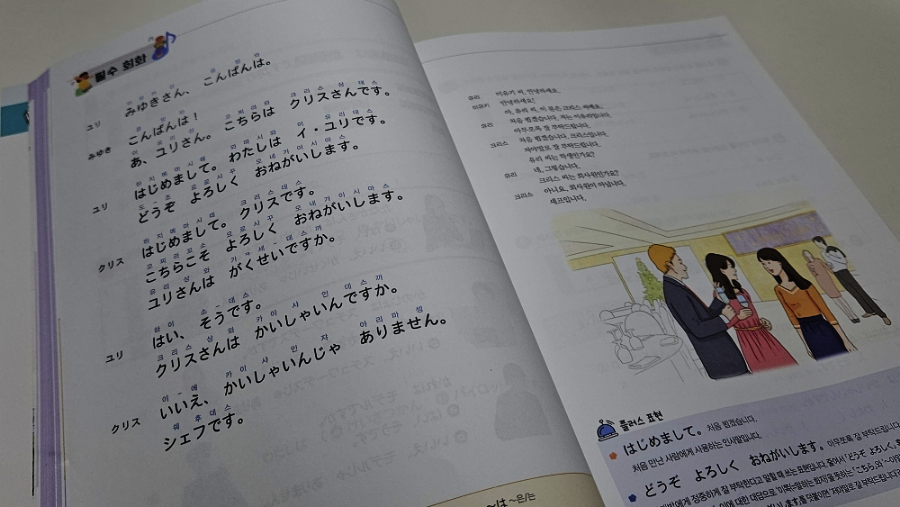 필수 회화
ユリ みゆきさん、こんばんは。
みゆき こんばんは！
あ、ユリさん。こちらは クリスさんです。
ユリ はじめまして。わたしは イ・ユリです。
どうぞ よろしく おねがいします。
クリス はじめまして。クリスです。
こちらこそ よろしく おねがいします。
ユリさんは がくせいですか。
ユリ はい、そうです。
クリスさんは かいしゃいんですか。
クリス いいえ、かいしゃいんじゃ ありません。
シェフです。
유리 미유키 씨, 안녕하세요.
미유키 안녕하세요!
아, 유리 씨. 이 분은 크리스 씨예요.
유리 처음 뵙겠습니다. 저는 이유리입니다.
아무쪼록 잘 부탁드립니다.
크리스 처음 뵙겠습니다. 크리스입니다.
저야말로 잘 부탁드립니다.
유리 씨는 학생인가요?
유리 네, 그렇습니다.
크리스 씨는 회사원인가요?
크리스 아니요, 회사원이 아닙니다.
셰프입니다.
플러스 표현
はじめまして。 처음 뵙겠습니다.
처음 만난 사람에게 사용하는 인사말입니다.
どうぞ よろしく おねがいします。 아무쪼록 잘 부탁드립니다.
~は ~은/는